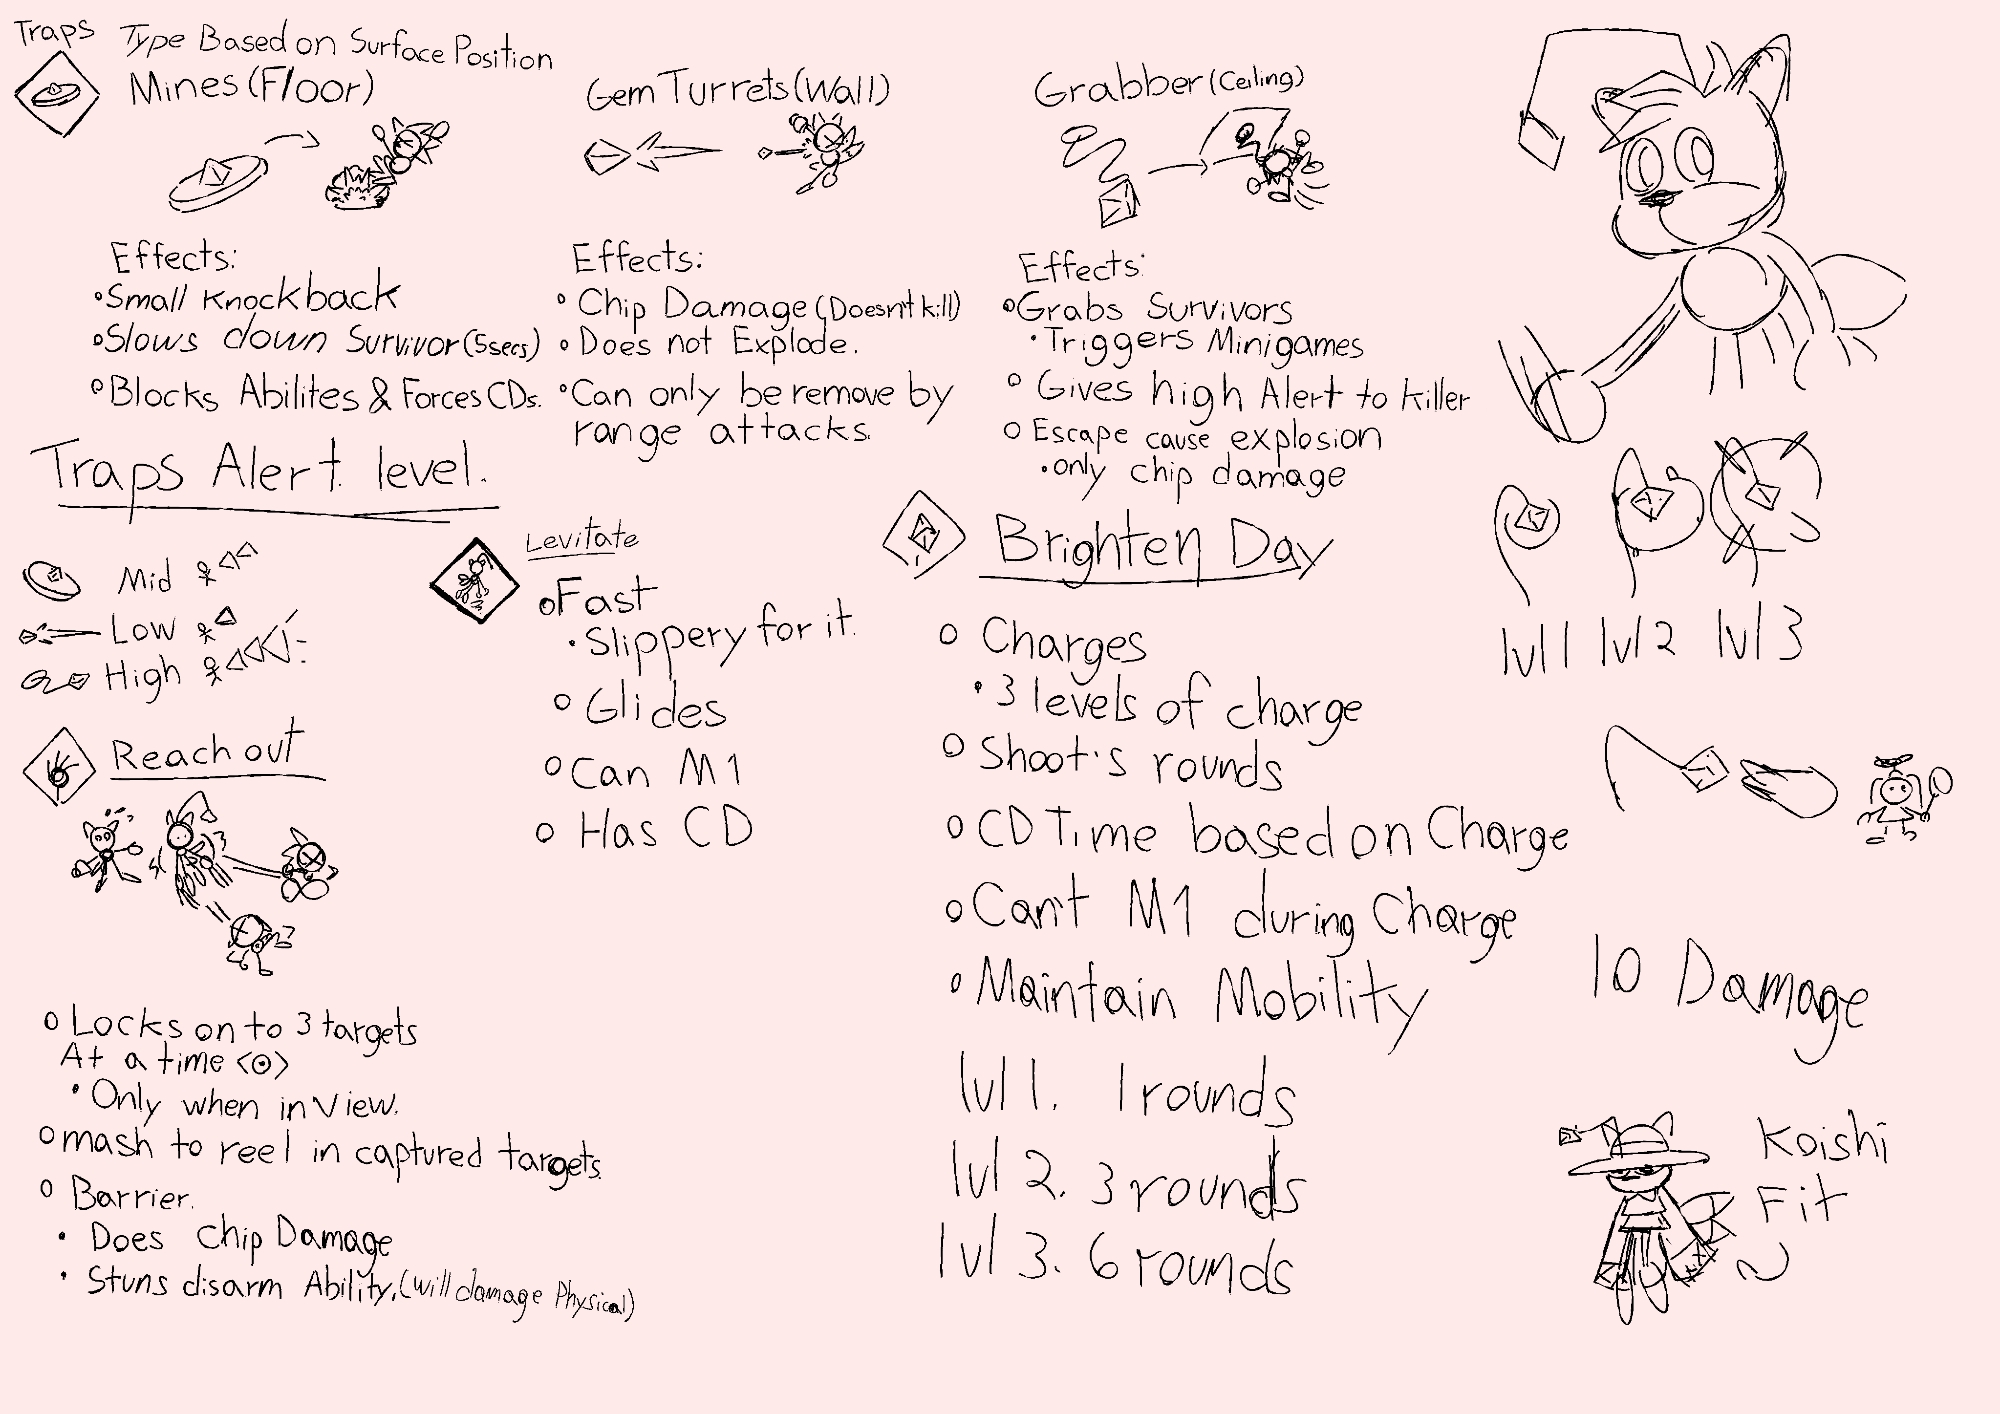 Traps Type Based on Surface Position
Mines (Floor)
Gem Turrets (Wall)
Grabber (Ceiling)
Effects:
•Small Knockback
•Slows down Survivor (5secs)
•Blocks Abilites & Forces CDs.
Effects:
•Chip Damage (Doesn't kill)
•Does not Explode.
•Can only be remove by
range attacks.
Effects:
•Grabs Survivors
•Triggers Minigames
•Gives high Alert to killer
•Escape cause explosion
•only chip damage
Traps Alert level.
Mid
Low
High
Levitate
•Fast
•Slippery for it.
•Glides
•Can M1
•Has CD
Brighten Day
•Charges
•3 levels of charge
•Shoot's rounds
•CD Time based on Charge
•Can't M1 during Charge
•Maintain Mobility
lvl 1. 1 rounds
lvl 2. 3 rounds
lvl 3. 6 rounds
lvl 1 lvl 2 lvl 3
10 Damage
Koishi
Fit
Reach out
•Locks on to 3 targets
At a time <⊙>
•Only when in View.
•mash to reel in captured targets.
•Barrier.
•Does Chip Damage
•Stuns disarm Ability. (will damage Physical)